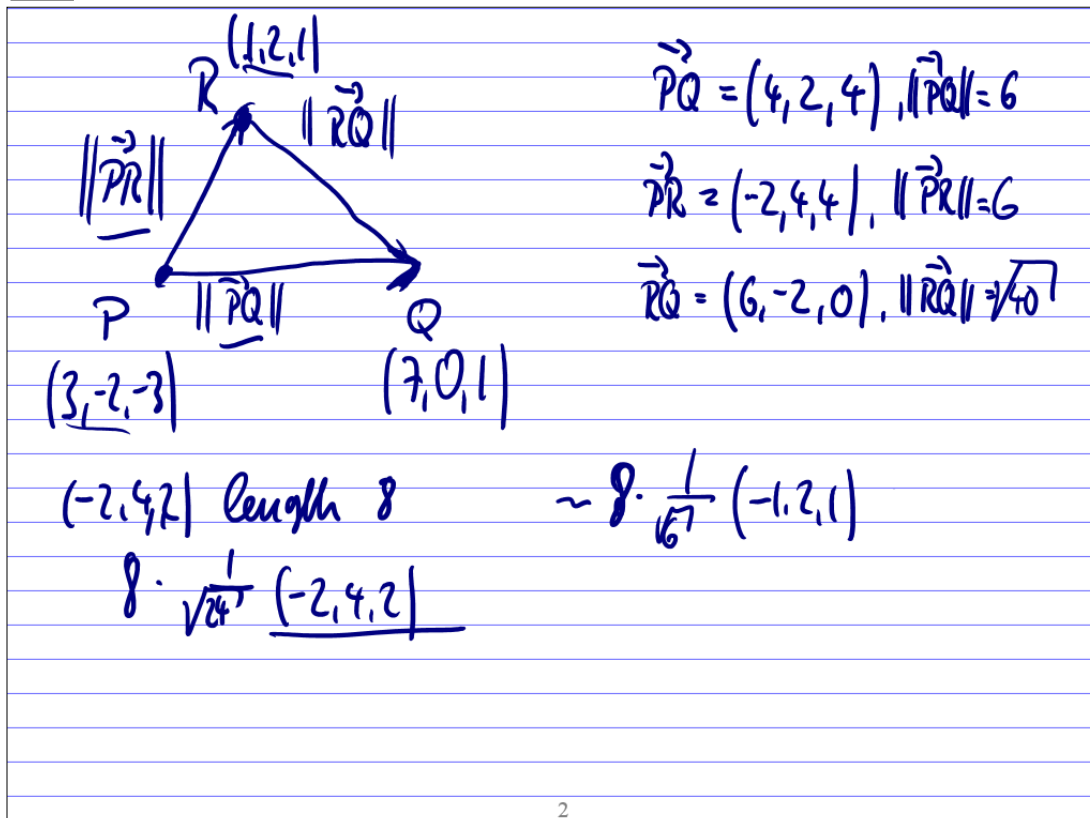 (1,2,1)
R
||RQ→||
||PR→||
P
||PQ→||
Q
(3,-2,-3)
(7,0,1)
PQ→ = (4,2,4), ||PQ→|| = 6
PR→ = (-2,4,4), ||PR→|| = 6
RQ→ = (6,-2,0), ||RQ→|| = √40
(-2,4,2) length 8
~ 8· 1/√6 (-1,2,1)
8· 1/√24 (-2,4,2)
2